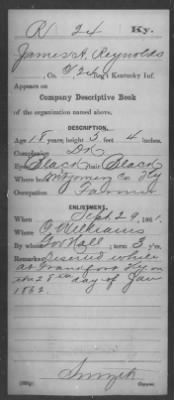 R 24 Ky.
James A. Reynolds
, Co. , 24 Reg't Kentucky Inf.
Appears on
Company Descriptive Book
of the organization named above.
DESCRIPTION.
Age 18 years; height 5 feet 4 inches.
Complexion Dk
Black; hair Black
Where born Montgomery Co Ky
Occupation Farmer
ENLISTMENT.
When Sept 29, 1861.
Where C Williams
By whom Gov Hall; term 3 y'rs.
Remarks: Deserted while
at Frankfort Ky on
the 28th day of Jan
1862.
Smyth
Copyist.